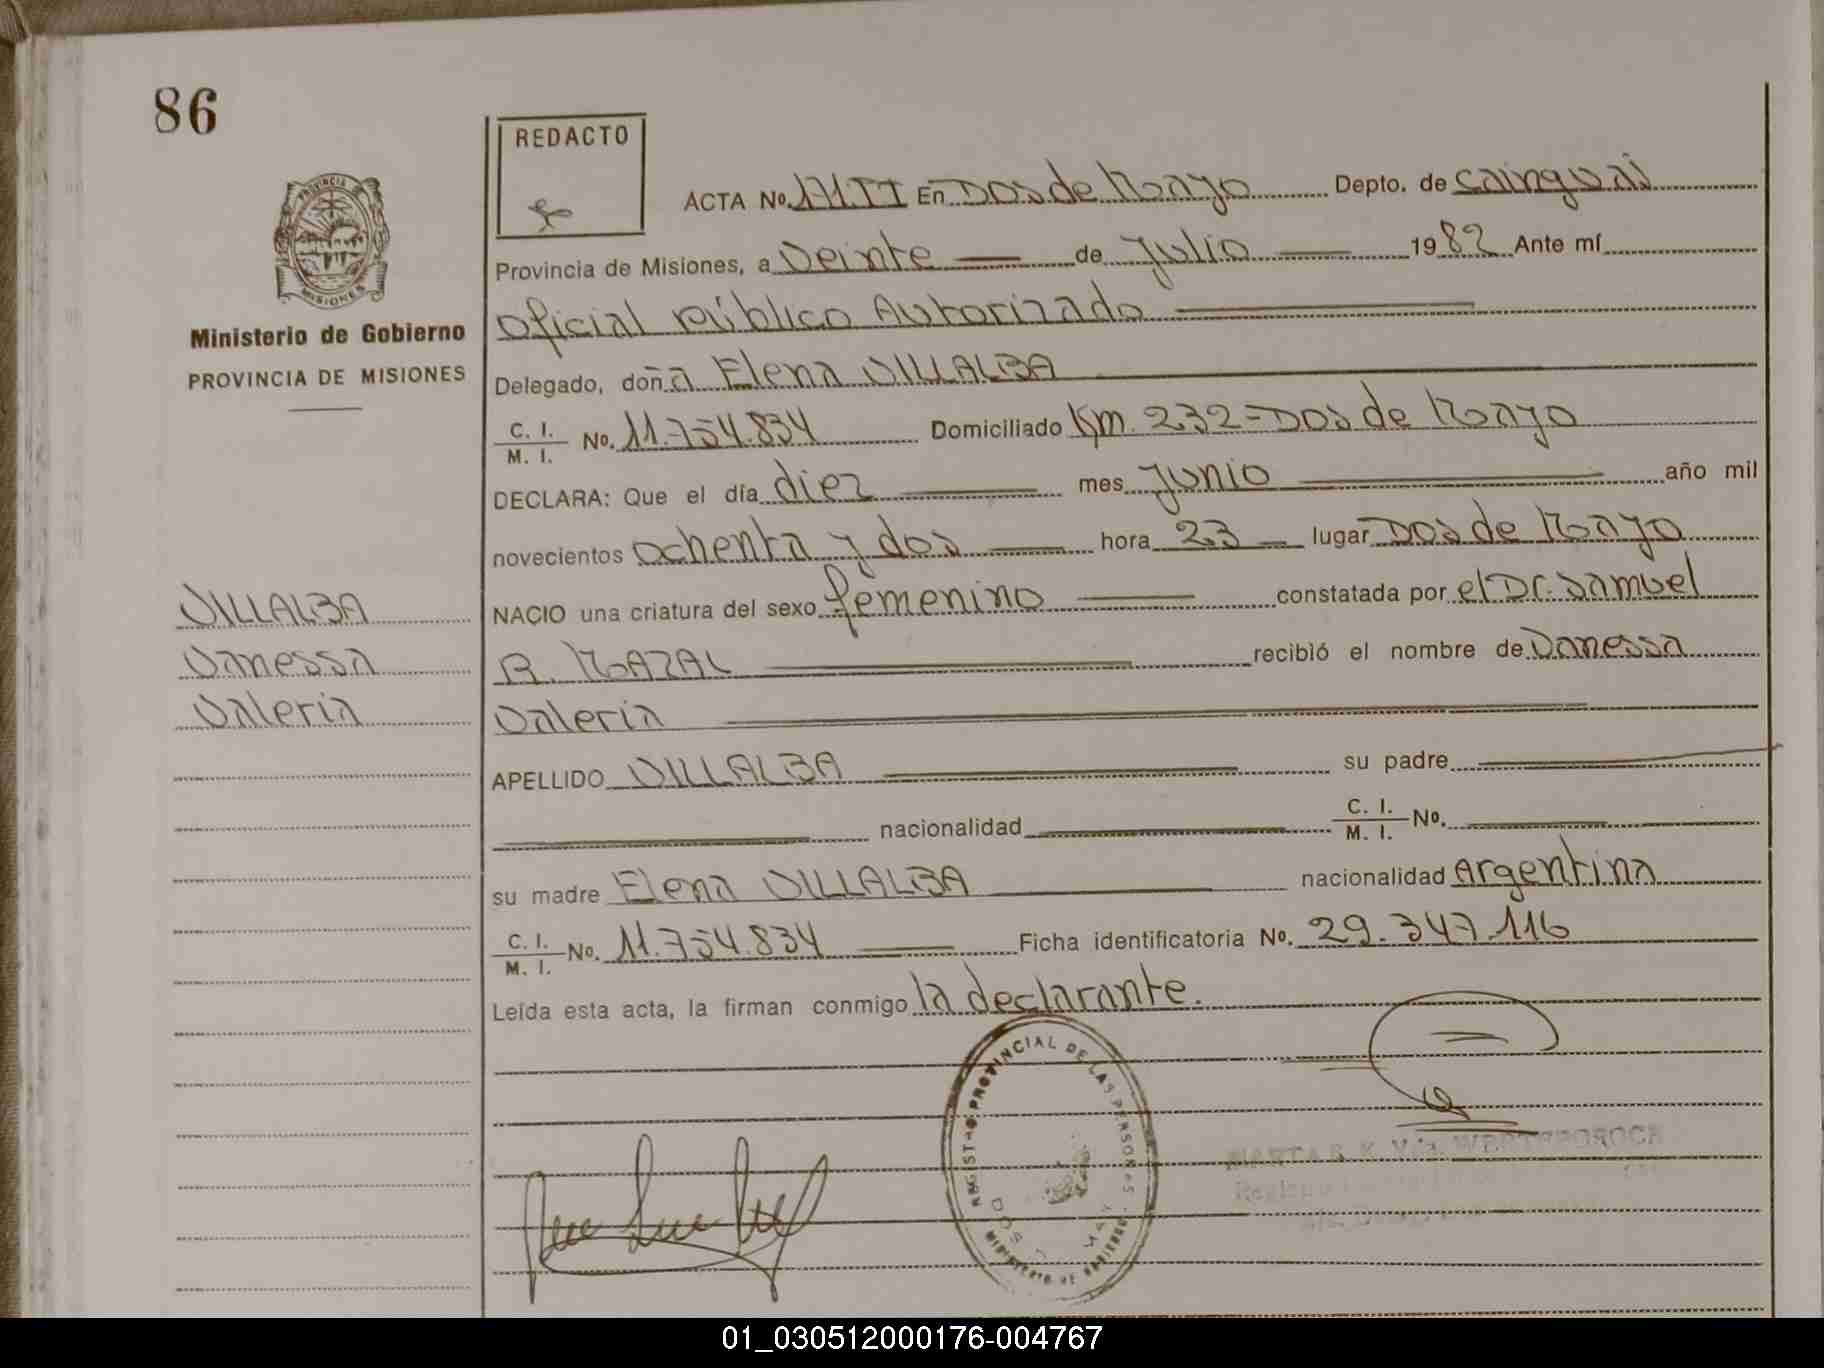 86
REDACTO
ACTA No. 171.TI En Dos de Mayo Depto. de Cainguás
Provincia de Misiones, a Veinte de Julio 1982 Ante mí
Oficial Público Autorizado
Ministerio de Gobierno
PROVINCIA DE MISIONES
Delegado, doña Elena VILLALBA
C. I. / M. I. No. 11.754.834 Domiciliado Km. 232=Dos de Mayo
DECLARA: Que el día diez mes Junio año mil
novecientos ochenta y dos hora 23 lugar Dos de Mayo
NACIO una criatura del sexo femenino constatada por el Dr. Samuel
R. MAZAL recibió el nombre de Vanessa
Valeria
VILLALBA
Vanessa
Valeria
APELLIDO VILLALBA su padre
nacionalidad C. I. / M. I. No.
su madre Elena VILLALBA nacionalidad Argentina
C. I. / M. I. No. 11.754.834 Ficha identificatoria No. 29.347.116
Leída esta acta, la firman conmigo la declarante.
REGISTRO PROVINCIAL DE LAS PERSONAS
MINISTERIO DE GOBIERNO
PROVINCIA
MISIONES
01_030512000176-004767